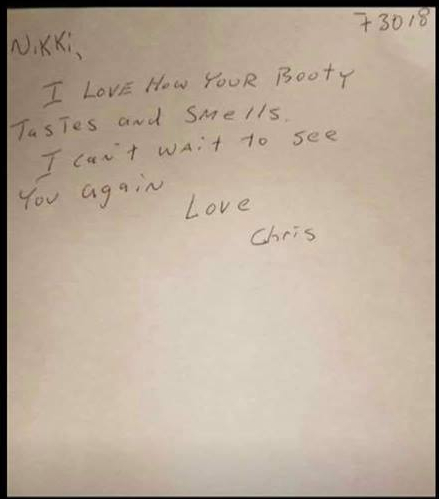 73018
Nikki,
I Love How Your Booty
Tastes and Smells.
I can't wait to see
You again
Love
Chris